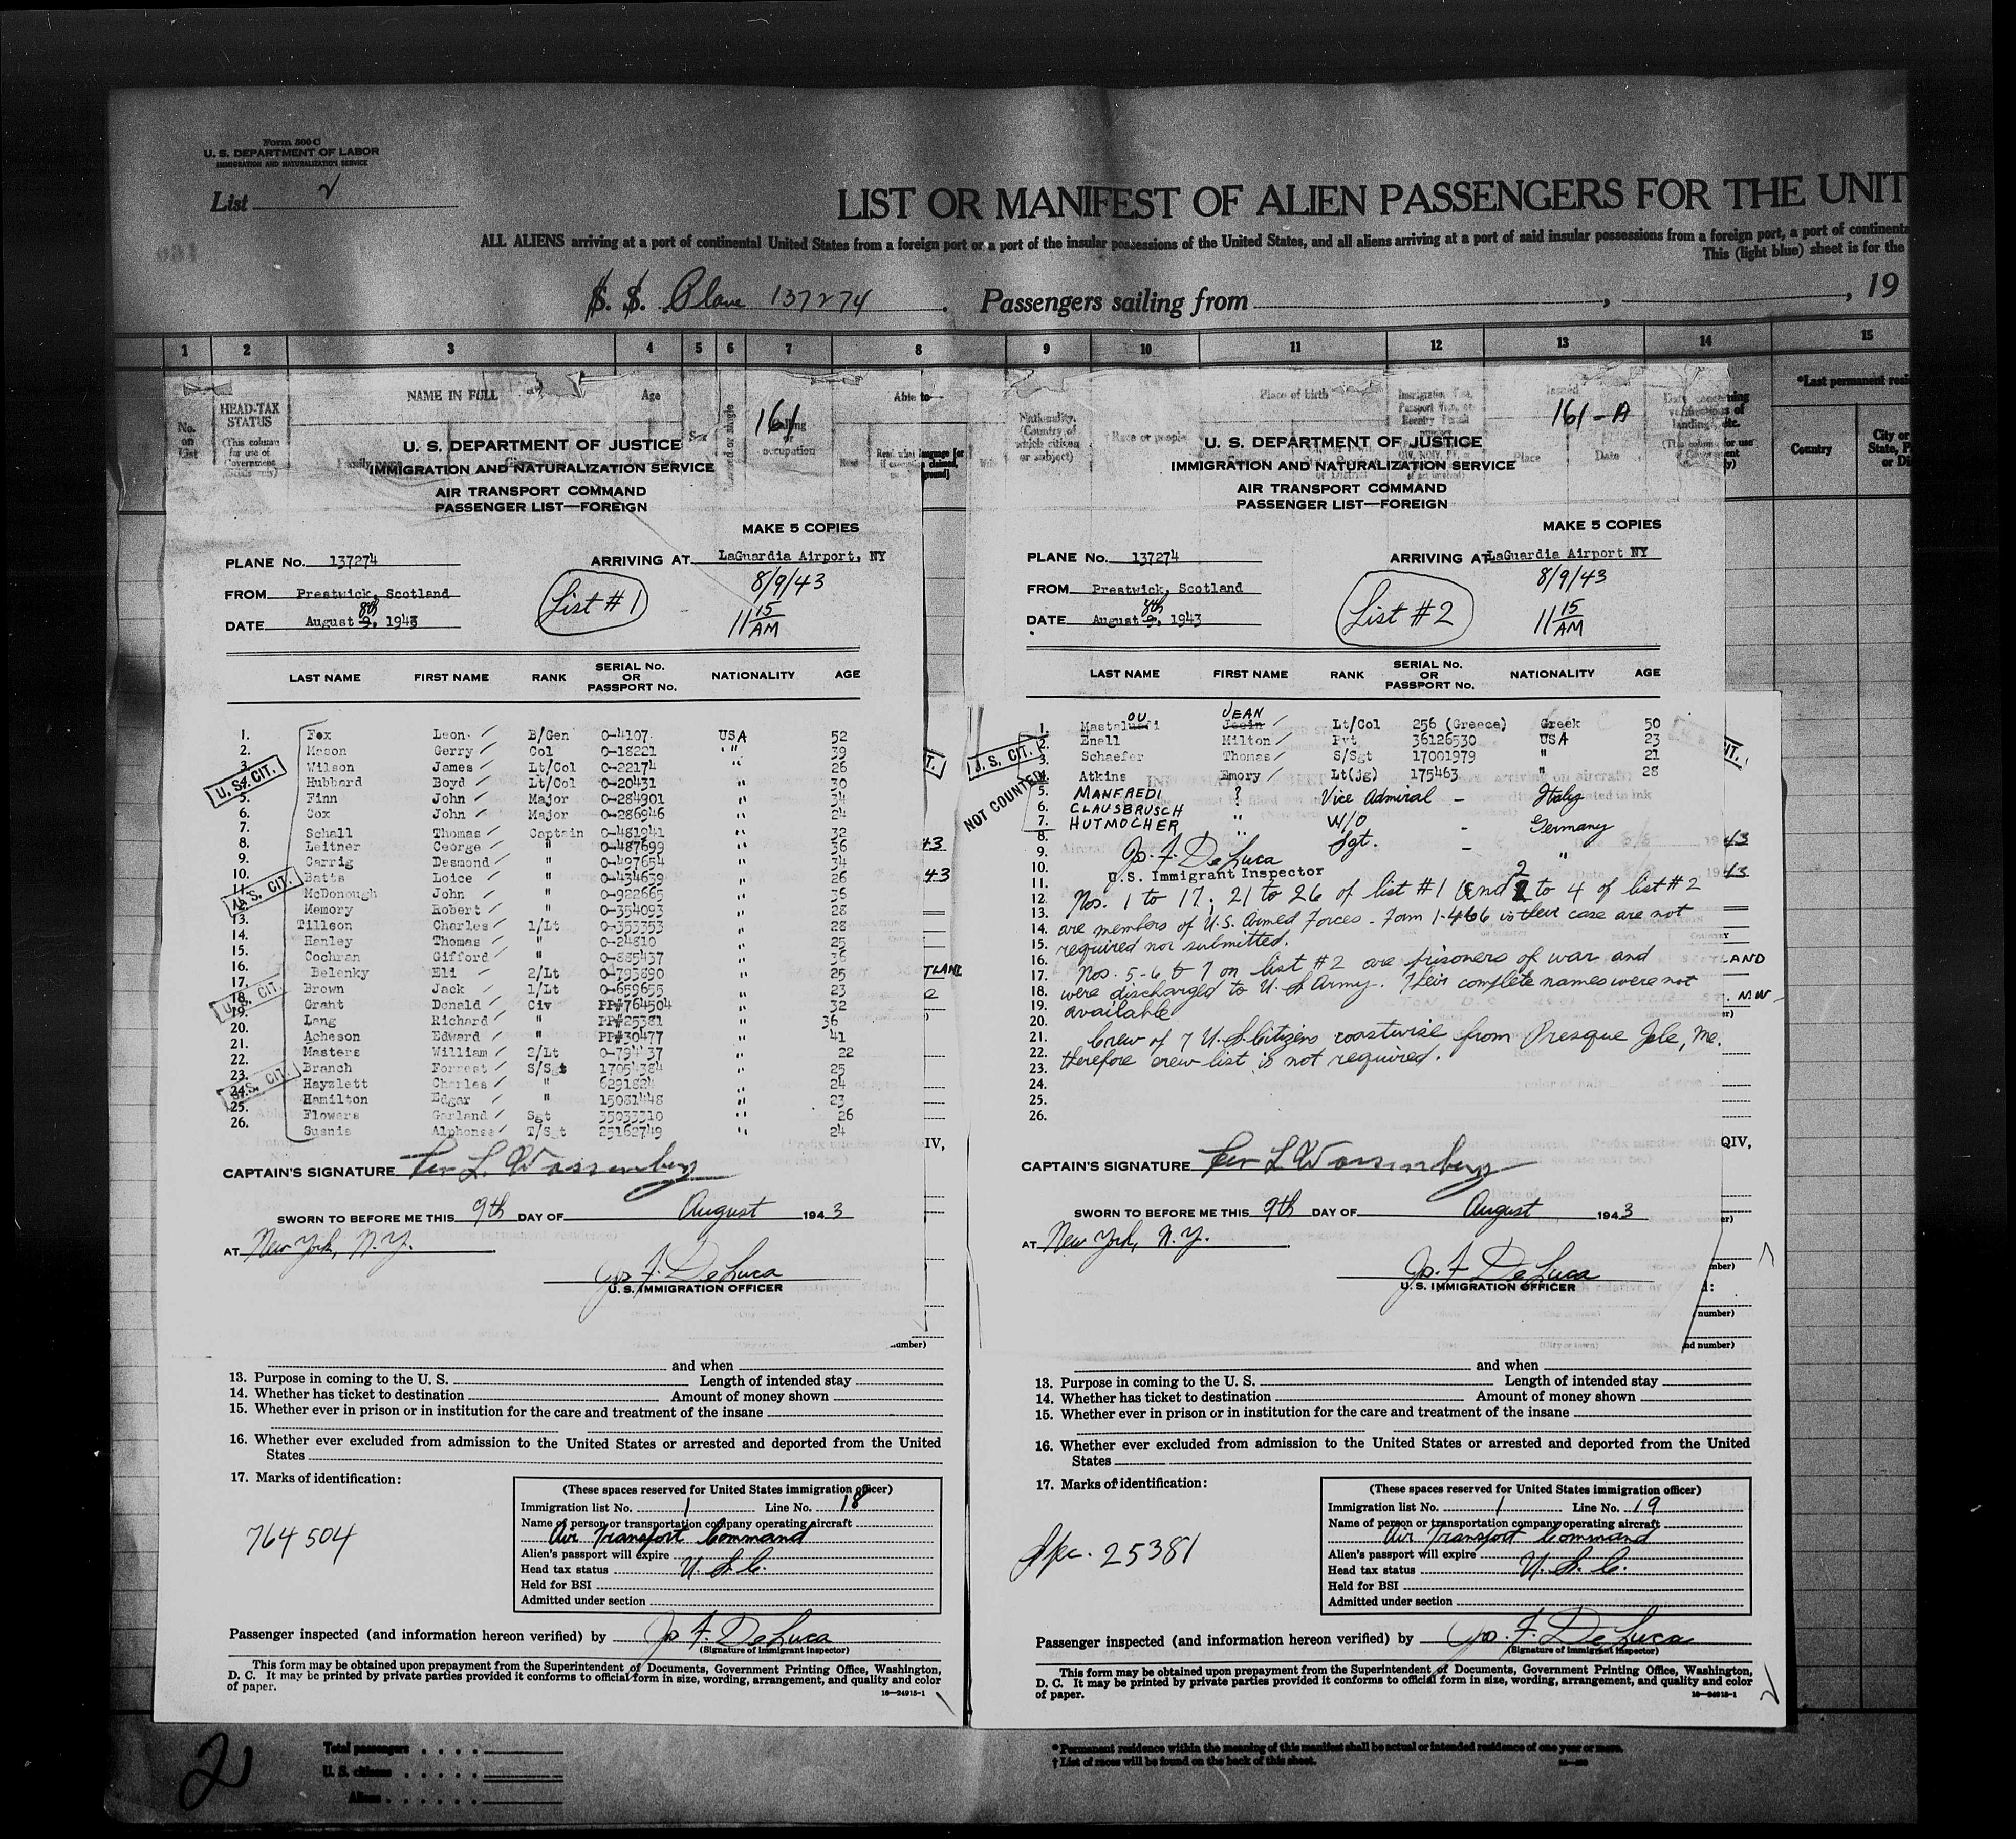 Form 500 C
U. S. DEPARTMENT OF LABOR
IMMIGRATION AND NATURALIZATION SERVICE
List 2
LIST OR MANIFEST OF ALIEN PASSENGERS FOR THE UNIT
ALL ALIENS arriving at a port of continental United States from a foreign port or a port of the insular possessions of the United States, and all aliens arriving at a port of said insular possessions from a foreign port, a port of continenta
This (light blue) sheet is for the
S. S. Plane 137274 . Passengers sailing from , , 19
1 2 3 4 5 6 7 8 9 10 11 12 13 14 15
No. on List
HEAD-TAX STATUS
(This column for use of Government officials only)
NAME IN FULL
Age
Sex
Calling or occupation
Able to
Nationality. (Country of which citizen or subject)
Race or people
Place of birth
Place
Date
*Last permanent resi
Country
City or
State, P
or Di
161
U. S. DEPARTMENT OF JUSTICE
IMMIGRATION AND NATURALIZATION SERVICE
AIR TRANSPORT COMMAND
PASSENGER LIST—FOREIGN
MAKE 5 COPIES
PLANE No. 137274 ARRIVING AT LaGuardia Airport, NY
FROM Prestwick, Scotland List #1 8/9/43
DATE August 8th 9, 1943 11 15 AM
LAST NAME FIRST NAME RANK SERIAL No. OR PASSPORT No. NATIONALITY AGE
1. Fox Leon B/Gen O-4107 USA 52
2. Mason Gerry Col O-18221 " 39
3. Wilson James Lt/Col O-22174 " 26
4. Hubbard Boyd Lt/Col O-20431 " 30
5. Finn John Major O-284901 " 34
6. Cox John Major O-286946 " 24
7. Schall Thomas Captain O-481941 " 32
8. Leitner George " O-487699 " 36
9. Carrig Desmond " O-497654 " 34
10. Batts Loice " O-434639 " 26
11. McDonough John " O-922665 " 36
12. Memory Robert " O-354093 " 28
13. Tillson Charles 1/Lt O-353353 " 28
14. Hanley Thomas " O-24810 " 25
15. Cochran Gifford " O-885437 " 36
16. Belenky Eli 2/Lt O-793890 " 25
17. Brown Jack 1/Lt O-659655 " 23
18. Grant Donald Civ PP#764504 " 32
19. Lang Richard " PP#25381 " 36
20. Acheson Edward " PP#30477 " 41
21. Masters William 2/Lt " 22
22. Branch Forrest S/Sgt 17054384 " 25
23. Hayzlett Charles " 6291824 " 24
24. Hamilton Edgar " 15081448 " 23
25. Flowers Garland Sgt 35033310 " 26
26. Susnis Alphonse T/Sgt 25162749 " 24
U. S. CIT.
U. S. CIT.
U. S. CIT.
U. S. CIT.
CAPTAIN'S SIGNATURE
SWORN TO BEFORE ME THIS 9th DAY OF August 1943
AT New York, N.Y.
Jos. F. DeLuca
U.S. IMMIGRATION OFFICER
and when
13. Purpose in coming to the U. S. Length of intended stay
14. Whether has ticket to destination Amount of money shown
15. Whether ever in prison or in institution for the care and treatment of the insane
16. Whether ever excluded from admission to the United States or arrested and deported from the United
States
17. Marks of identification:
764504
(These spaces reserved for United States immigration officer)
Immigration list No. 1 Line No. 18
Name of person or transportation company operating aircraft
Air Transport Command
Alien's passport will expire
Head tax status U. S. C.
Held for BSI
Admitted under section
Passenger inspected (and information hereon verified) by Jos F. DeLuca
(Signature of immigrant inspector)
This form may be obtained upon prepayment from the Superintendent of Documents, Government Printing Office, Washington,
D. C. It may be printed by private parties provided it conforms to official form in size, wording, arrangement, and quality and color
of paper.
16—24915-1
161-A
U. S. DEPARTMENT OF JUSTICE
IMMIGRATION AND NATURALIZATION SERVICE
AIR TRANSPORT COMMAND
PASSENGER LIST—FOREIGN
MAKE 5 COPIES
PLANE No. 137274 ARRIVING AT LaGuardia Airport NY
FROM Prestwick, Scotland List #2 8/9/43
DATE August 8th 9, 1943 11 15 AM
LAST NAME FIRST NAME RANK SERIAL No. OR PASSPORT No. NATIONALITY AGE
1. OU JEAN Lt/Col 256 (Greece) Greek 50
2. Enell Milton Pvt 36126530 USA 23
3. Schaefer Thomas S/Sgt 17001979 " 21
4. Atkins Emory Lt(jg) 175463 " 28
5. MANFREDI ? Vice Admiral - Italy
6. CLAUSBRUSCH " W/O - Germany
7. HUTMOCHER " Sgt. - "
8.
9. Jos. F. DeLuca
10. U.S. Immigrant Inspector
11.
12. Nos. 1 to 17, 21 to 26 of list #1 and 2 to 4 of list #2
13.
14. are members of U.S. Armed Forces - Form I-466 in their case are not
15. required nor submitted.
16. Nos. 5-6 & 7 on list #2 are prisoners of war and
17.
18. were discharged to U.S. Army. Their complete names were not
19. available
20.
21. Crew of 7 U.S. Citizens coastwise from Presque Isle, Me.
22. therefore crew list is not required.
23.
24.
25.
26.
U. S. CIT.
NOT COUNTED
CAPTAIN'S SIGNATURE
SWORN TO BEFORE ME THIS 9th DAY OF August 1943
AT New York, N.Y.
Jos. F. DeLuca
U.S. IMMIGRATION OFFICER
and when
13. Purpose in coming to the U. S. Length of intended stay
14. Whether has ticket to destination Amount of money shown
15. Whether ever in prison or in institution for the care and treatment of the insane
16. Whether ever excluded from admission to the United States or arrested and deported from the United
States
17. Marks of identification:
Spec. 25381
(These spaces reserved for United States immigration officer)
Immigration list No. 1 Line No. 19
Name of person or transportation company operating aircraft
Air Transport Command
Alien's passport will expire
Head tax status U. S. C.
Held for BSI
Admitted under section
Passenger inspected (and information hereon verified) by Jos. F. DeLuca
(Signature of immigrant inspector)
This form may be obtained upon prepayment from the Superintendent of Documents, Government Printing Office, Washington,
D. C. It may be printed by private parties provided it conforms to official form in size, wording, arrangement, and quality and color
of paper.
16—24915-1
2
Total passengers
U. S. citizens
Aliens
*Permanent residence within the meaning of this manifest shall be actual or intended residence of one year or more.
†List of races will be found on the back of this sheet.